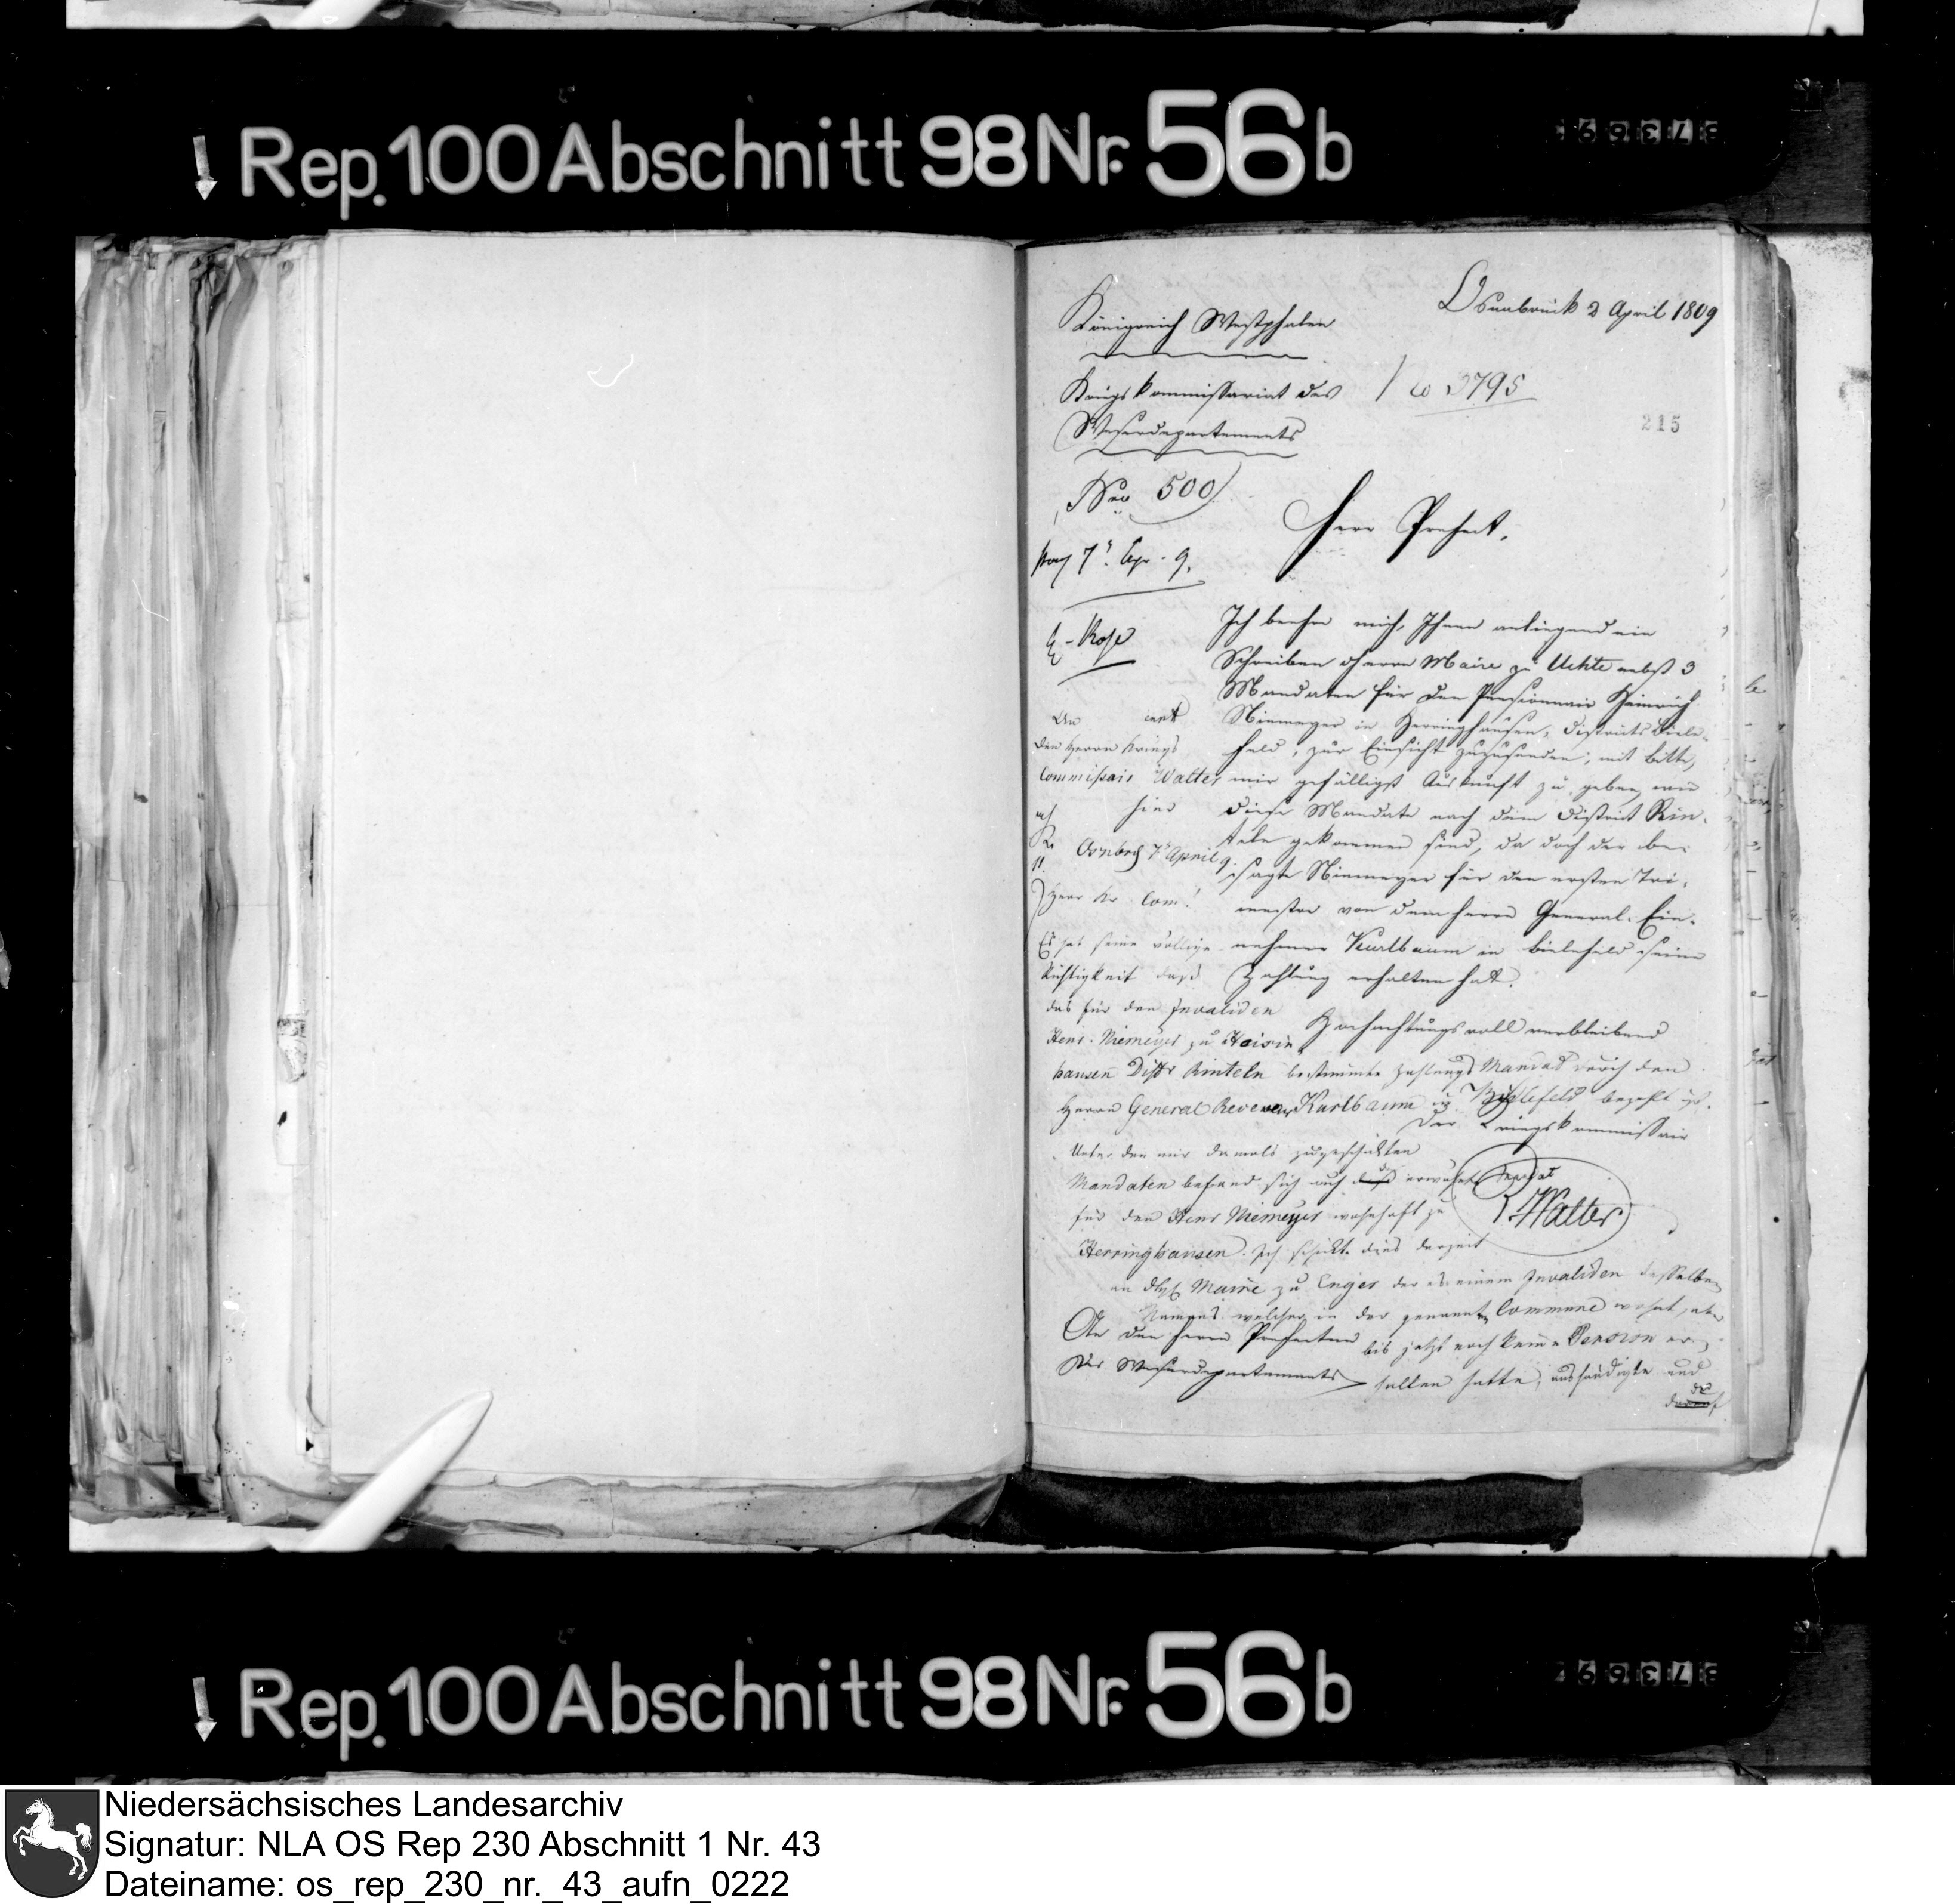 Rep. 100 Abschnitt 98 Nr. 56b
Osnabrück 2 April 1809
Königreich Westphalen
Kriegskommissariat des
Weserdepartements
3795
215
Nro 500
Herr Prefect,
7 Apr. 9.
Ich beehre mich, Ihnen anliegend ein
Schreiben Maire zu Uchte nebst 3
Mandaten für den Pensionair Heinrich
Niemeyer in Herringhausen, Districts Biele-
feld, zur Einsicht zuzusenden, mit Bitte,
mir gefälligst Auskunft zu geben, wie
diese Mandate nach dem District Rin-
teln gekommen sind, da doch der be-
sagte Niemeyer für den ersten Tri-
mestre von dem Herrn General-Ein-
nehmer Kurlbaum in Bielefeld seine
Zahlung erhalten hat.
Hochachtungsvoll verbleibend
Der Kriegskommissair
Walter
An den Herrn Prefecten
des Weserdepartements
den Herrn Kriegs
Commissair Walter
hier
Osnbrg 7 April 9.
Herr Kr Com!
Es hat seine völlige
Richtigkeit daß
das für den Invaliden
Henr. Niemeyer zu
hausen Distr Rinteln bestimmte Zahlungs Mandat durch den
Herrn General Receveur Kurlbaum in Bielefeld bezahlt ist.
Unter den mir damals zugeschickten
Mandaten befand sich auch erwähnte
für den Henr Niemeyer wohnhaft zu
Herringhausen. Ich schickte dies derzeit
an Maire zu Enger der es einem Invaliden desselben
Namens welcher in der genannten Commune wohnt,
bis jetzt noch keine Pension er
halten hatte, aushändigte und
Rep. 100 Abschnitt 98 Nr. 56b
Niedersächsisches Landesarchiv
Signatur: NLA OS Rep 230 Abschnitt 1 Nr. 43
Dateiname: os_rep_230_nr._43_aufn_0222